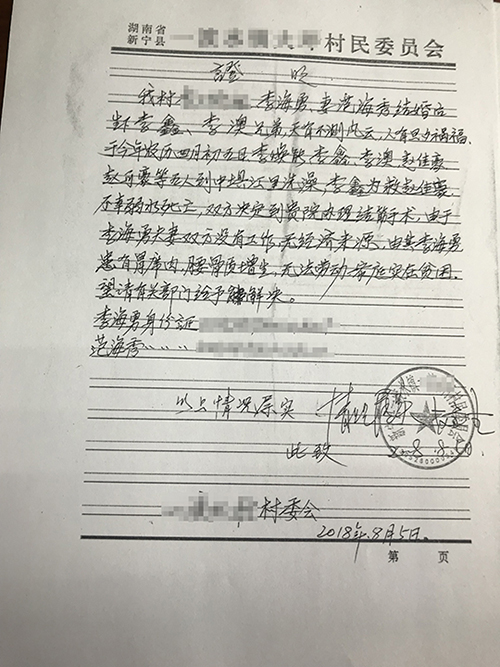 湖南省
新宁县
一 村民委员会
證 明
我村 李海勇、妻范海秀结婚后
生李鑫、李澳兄弟、天有不测风云、人有旦夕祸福、
于今年农历四月初五日李焕能、李鑫、李澳、赵佳豪、
赵可豪等五人到中堤江里洗澡,李鑫为救赵佳豪
不幸溺水死亡,双方决定到贵院办理结
扎手术,由于
李海勇夫妻双方没有工作、无经济来源、由其李海勇
患有肩席肉、腰骨质增生、无法劳动、家庭实在贫困、
望请有关部门给予 解决。
李海勇身份证
范海秀、、、、、
以上情况属实
此致
一 村委会
2018年8月5日
第 页